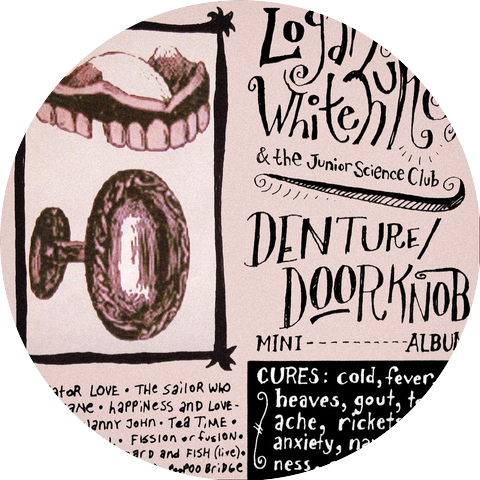 Logan
Whitehurst
& the Junior Science Club
DENTURE/
DOORKNOB
MINI ALBUM
LOVE • THE SAILOR WHO
HAPPINESS AND LOVE-
TEA TIME •
FISSION or fusion •
AND FISH (live) •
BRIDGE
CURES: cold, fever
heaves, gout,
ache, rickets
anxiety,
ness